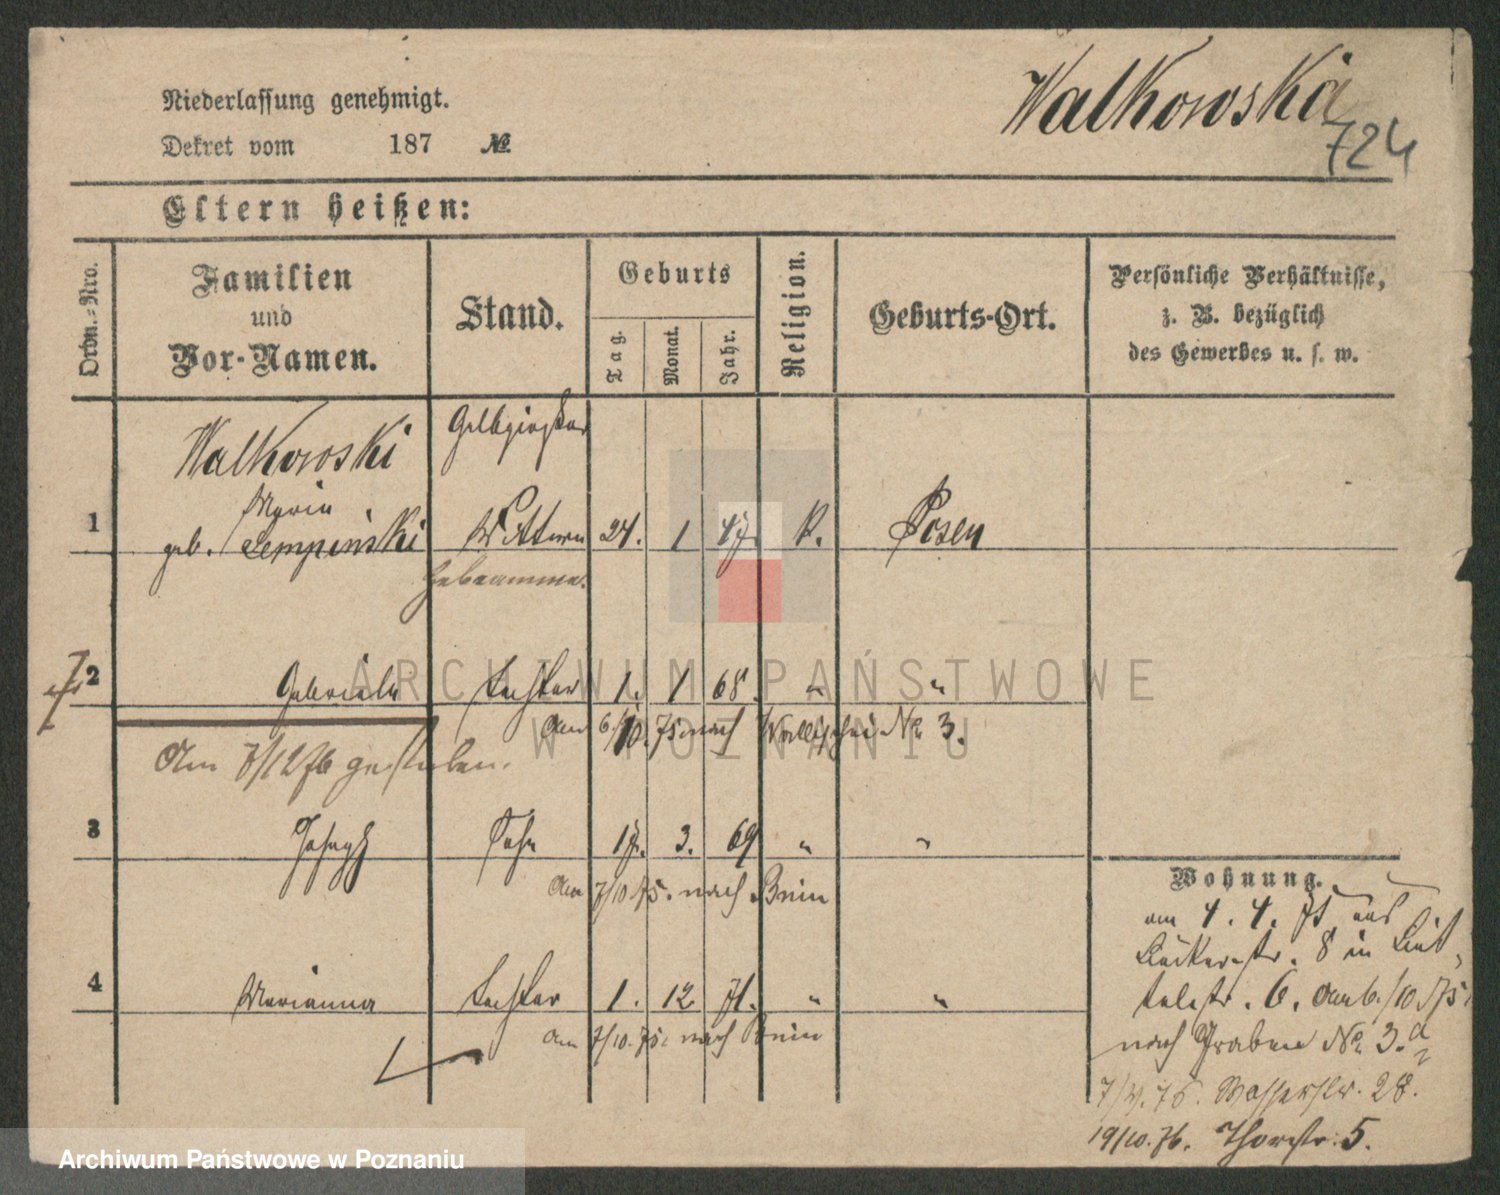 Niederlassung genehmigt.
Dekret vom 187 №
Walkowska
724
Eltern heißen:
Ordn.-Nro.
Familien
und
Vor-Namen.
Stand.
Geburts
Tag.
Monat.
Jahr.
Religion.
Geburts-Ort.
Persönliche Verhältnisse,
z. B. bezüglich
des Gewerbes u. s. w.
Walkowski Gelbgießer
Maria
1 geb. Lempinski Wittwe 24. 1 47 K. Posen
Hebeamme.
2 Gabriela Tochter 1. 1 68. " "
Am 6/10. 75 nach Wallischei No 3.
Am 7/12 76 gestorben.
3 Joseph Sohn 17. 3. 69 " "
Am 7/10. 75. nach Bnin
4 Marianna Tochter 1. 12 71. " "
Am 7/10. 75. nach Bnin
Wohnung.
am 4. 4. 75 aus
Bäckerstr. 8 in Büt-
telstr. 6. Am 6./10 75
nach Graben No 3. a
7/4. 76. Wasserstr. 28.
19/10. 76. Thorstr. 5.
ARCHIWUM PAŃSTWOWE
W POZNANIU
Archiwum Państwowe w Poznaniu